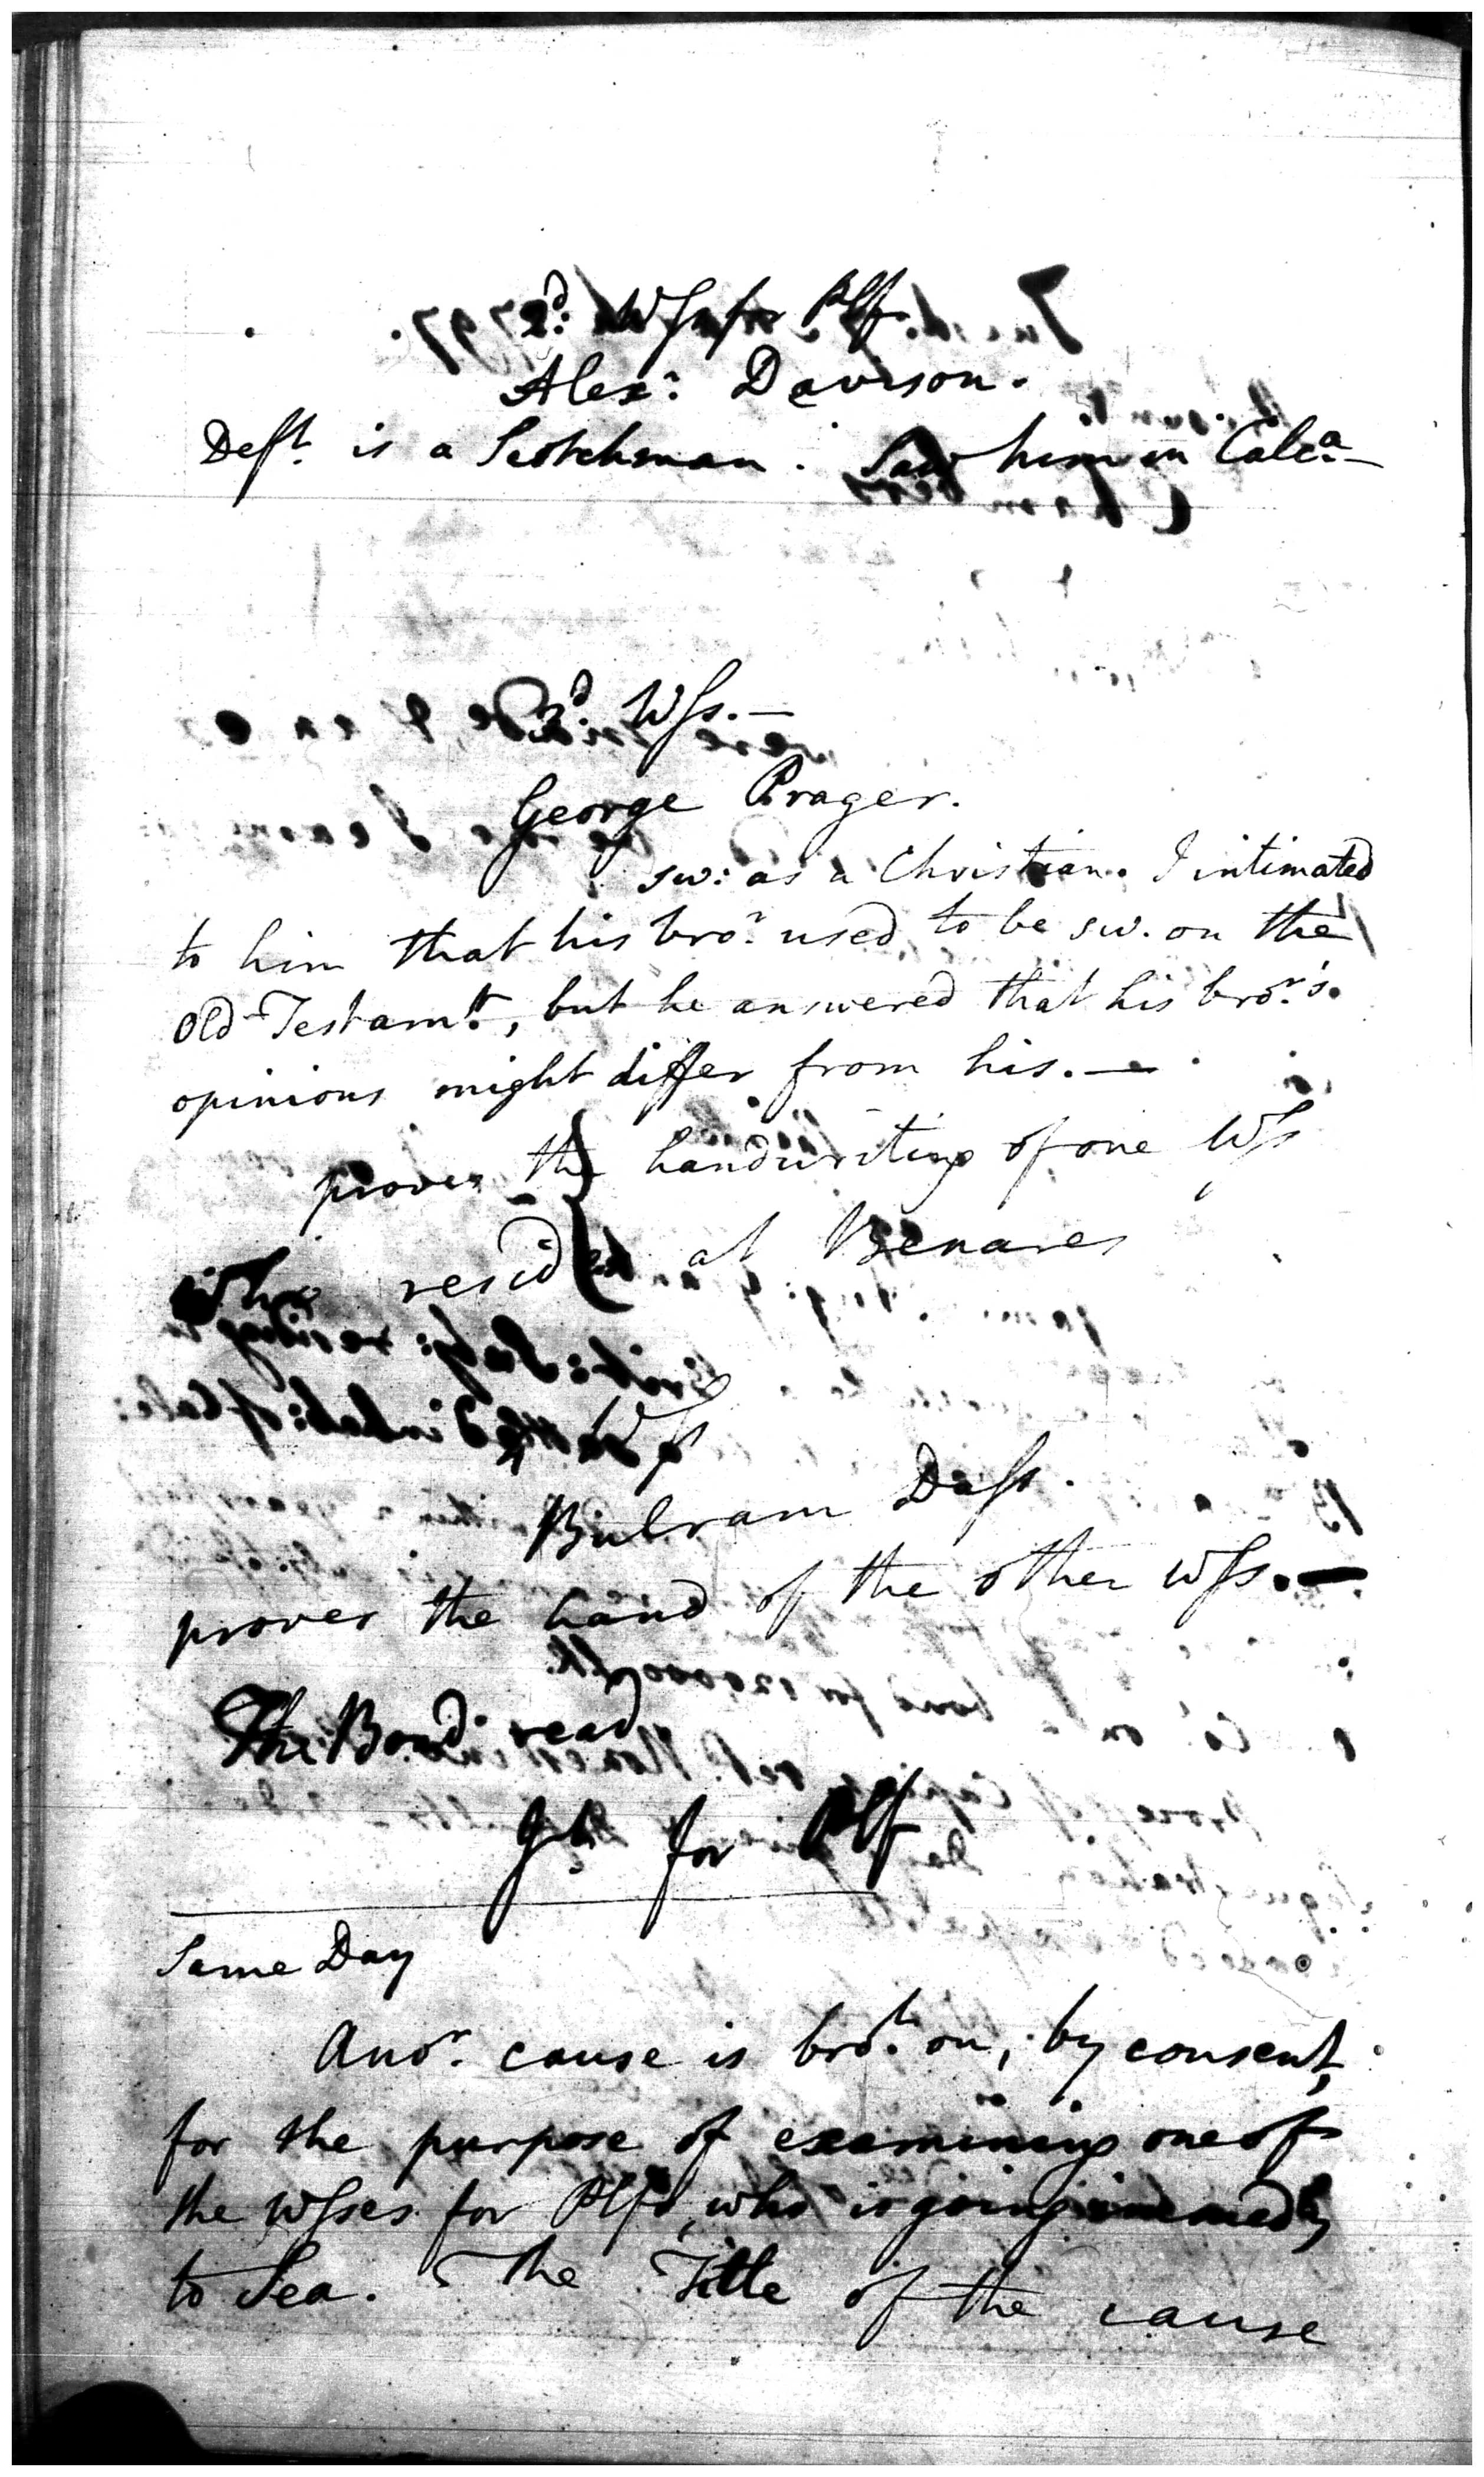 2d: Wss for Plf
Alexr: Davison.
Deft. is a Scotchman. Saw him in Calca.—
3d. Wss.—
George Prager.
sw: as a Christian. I intimated
to him that his bror. used to be sw. on the
Old Testamt., but he answered that his bror's.
opinions might differ from his.—
proves the handwriting of one Wss
who resides at Benares
Wss
Bulram Dass.
proves the hand of the other Wss.—
The Bond read
Jt. for Plf
Same Day
Anor. cause is brot. on, by consent,
for the purpose of examining one of
the Wsses for Plfs, who is going immedly
to Sea. The Title of the cause